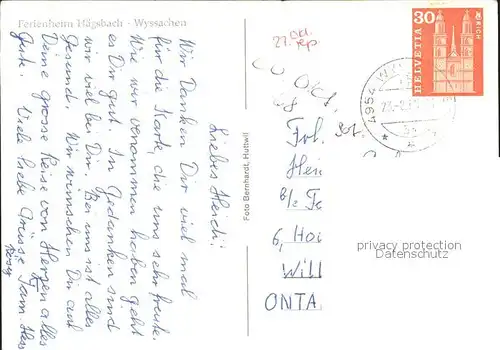 Ferienheim Hägsbach - Wyssachen
Liebes Heidi!
Wir Danken Dir viel mal
für die Karte, die uns sehr freute.
Wie wir vernommen haben geht
es Dir gut. In Gedanken sind
wir viel bei Dir. Bei uns ist alles
Gesund. Wir wünschen Dir auf
Deine grosse Reise von Herzen alles
Gute. Viele liebe Grüsse Fam. Hess
Foto Bernhardt, Huttwil
27. Okt.
HELVETIA
30
ZÜRICH
4954
Frl.
Hei
B/2
6, Hoi
Will
ONTA
privacy protection
Datenschutz